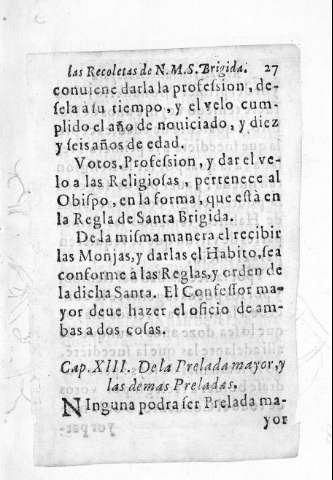 las Recoletas de N.M.S. Brigida. 27
conuiene darla la profession, de-
sela à su tiempo, y el velo cum-
plido el año de nouiciado, y diez
y seis años de edad.
Votos, Profession, y dar el ve-
lo a las Religiosas, pertenece al
Obispo, en la forma, que està en
la Regla de Santa Brigida.
De la misma manera el recibir
las Monjas, y darlas el Habito, sea
conforme à las Reglas, y orden de
la dicha Santa. El Confessor ma-
yor deue hazer el oficio de am-
bas a dos cosas.
Cap. XIII. De la Prelada mayor, y
las demas Preladas.
NInguna podra ser Prelada ma-
yor